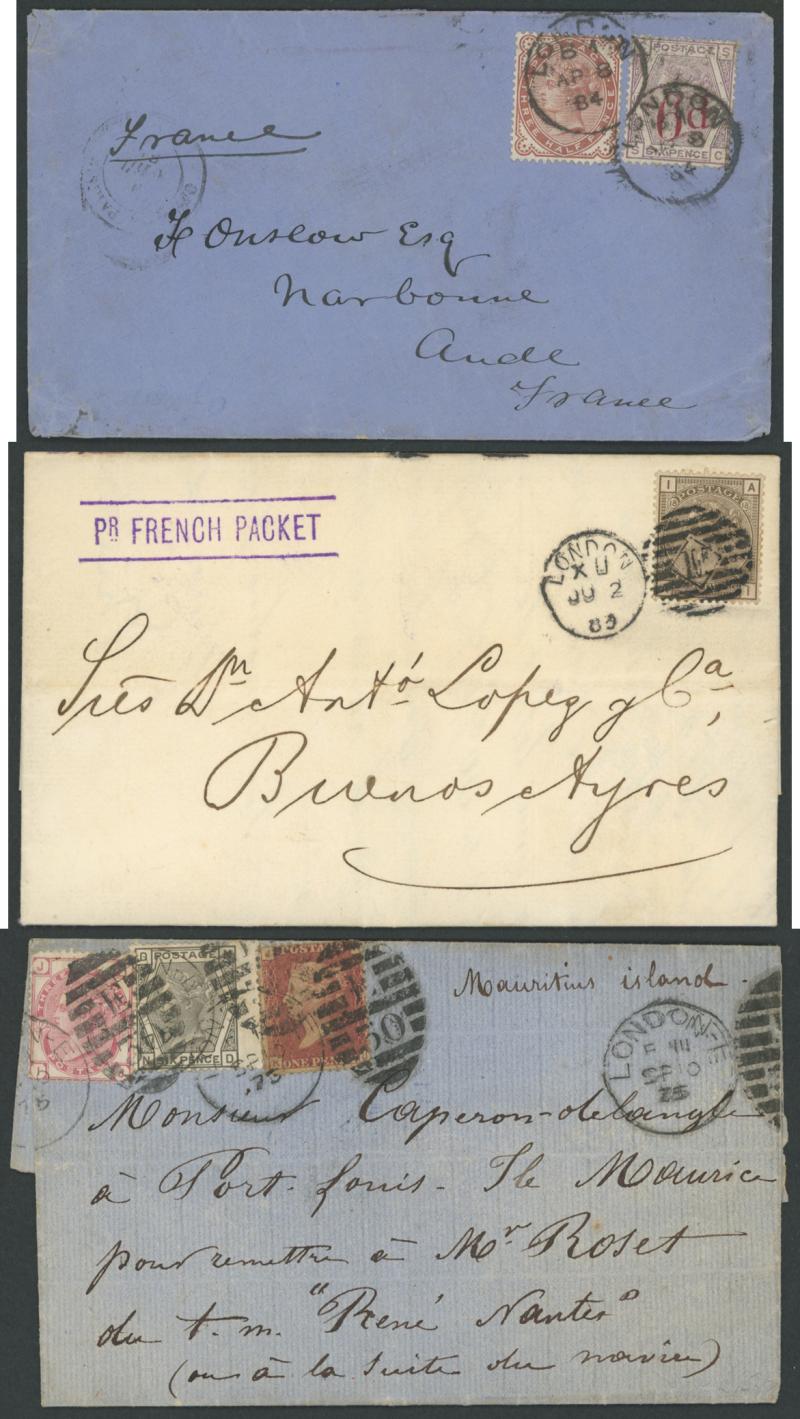 LONDON
B A
AP 8
84
THREE HALF PENCE
POSTAGE
S
6d
S SIX PENCE C
LONDON
8
84
France
PARIS
H Onslow Esq
Narbonne
Aude
France
PR FRENCH PACKET
I POSTAGE A
LONDON
XU
JU 2
83
I
Sres Dn Antó Lopez y Ca,
Buenos Ayres
J
THREE
H
B POSTAGE N
N SIX PENCE D
75
ONE PENNY
Mauritius island.
LONDON-E
SP 10
75
Monsieur Caperon-delangle
à Port-Louis - Ile Maurice
pour remettre à Mr Roset
du t.m. "René Nantes"
(ou à la suite du navire)